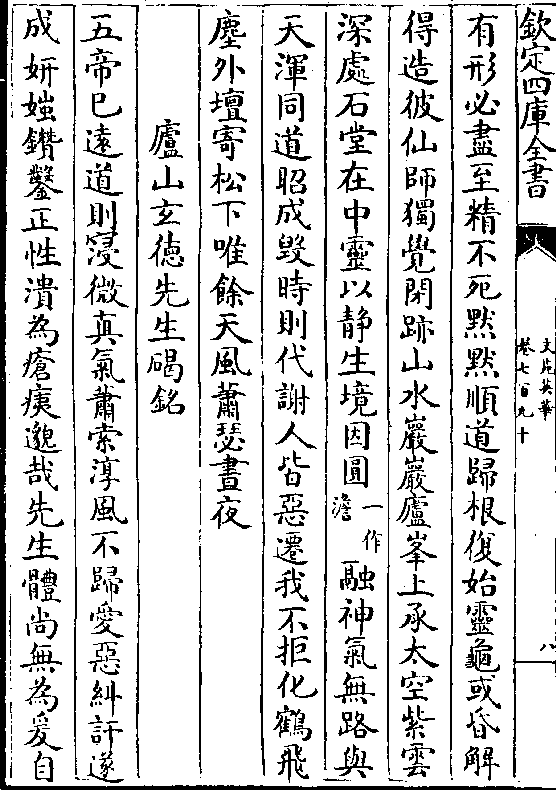 欽定四庫全書
文苑英華
卷七百九十
八
有形必盡至精不死黙黙順道歸根復始靈龜或昏解
得造彼仙師獨覺閑跡山水巖巖廬峯上承太空紫雲
深處石堂在中靈以静生境因圓一作澹融神氣無路與
天渾同道昭成毀時則代謝人皆惡遷我不拒化鶴飛
塵外壇寄松下唯餘天風蕭瑟晝夜
廬山玄徳先生碣銘
五帝已遠道則寖微真氣蕭索淳風不歸愛惡糾訐遂
成妍媸鑚鑿正性潰為瘡痍邈哉先生體尚無為爰自